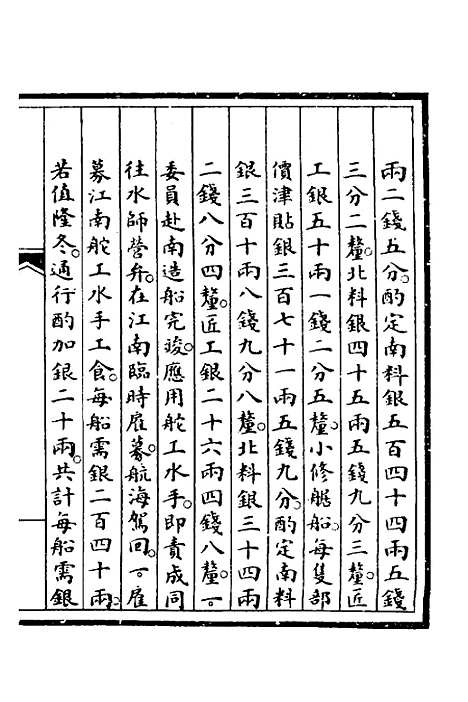 兩二錢五分。酌定南料銀五百四十四兩五錢
三分二釐。北料銀四十五兩五錢九分三釐。匠
工銀五十兩一錢二分五釐。小修艍船。每隻部
價津貼銀三百七十一兩五錢九分。酌定南料
銀三百十兩八錢九分八釐。北料銀三十四兩
二錢八分四釐。匠工銀二十六兩四錢八釐。一。
委員赴南造船完竣。應用舵工水手。即責成同
往水師營弁。在江南臨時雇募。航海駕回。一。雇
募江南舵工水手工食。每船需銀二百四十兩。
若值隆冬。通行酌加銀二十兩。共計每船需銀